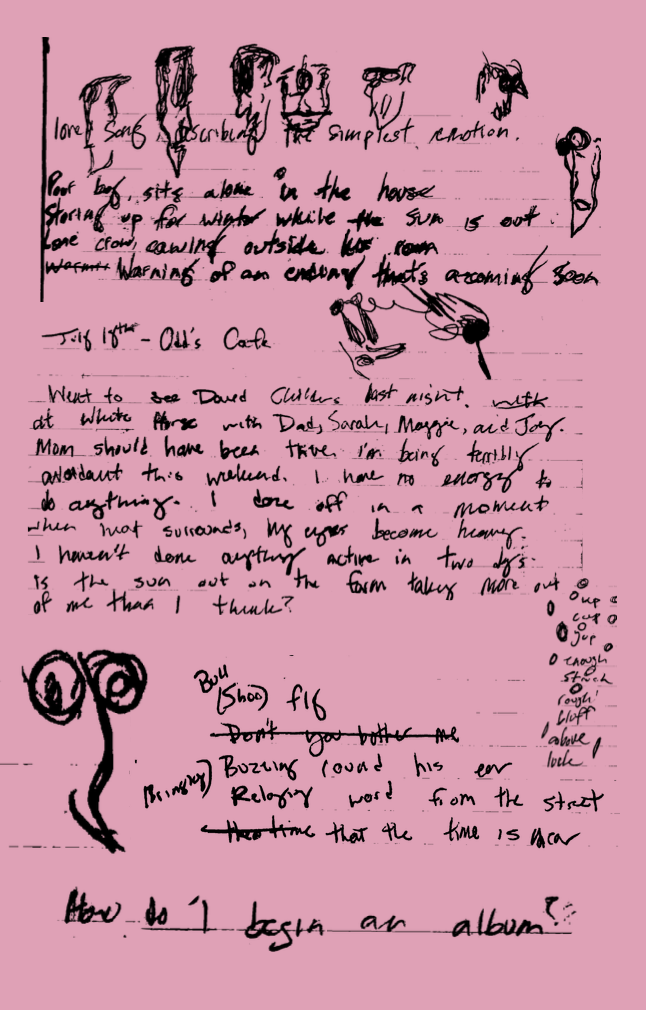 love song describing the simplest emotion.
Poor boy, sits alone in the house
Storing up for winter while the sun is out
Lone crow, cawing outside his room
Warning of an ending that's acoming soon
July 18th - Odd's Cafe
Went to see David Childers last night. with
at White Horse with Dad, Sarah, Maggie, and Joy.
Mom should have been there. I'm being terribly
avoidant this weekend. I have no energy to
do anything. I doze off in a moment
when heat surrounds, my eyes become heavy.
I haven't done anything active in two dys.
is the sun out on the farm taking more out
of me than I think?
up
cup
jup
enough
struck
rough
bluff
above
luck
Bull
(Shoo) fly
Don't you bother me
Buzzing round his ear
(Bringing) Relaying word from the street
that the time is near
How do I begin an album?